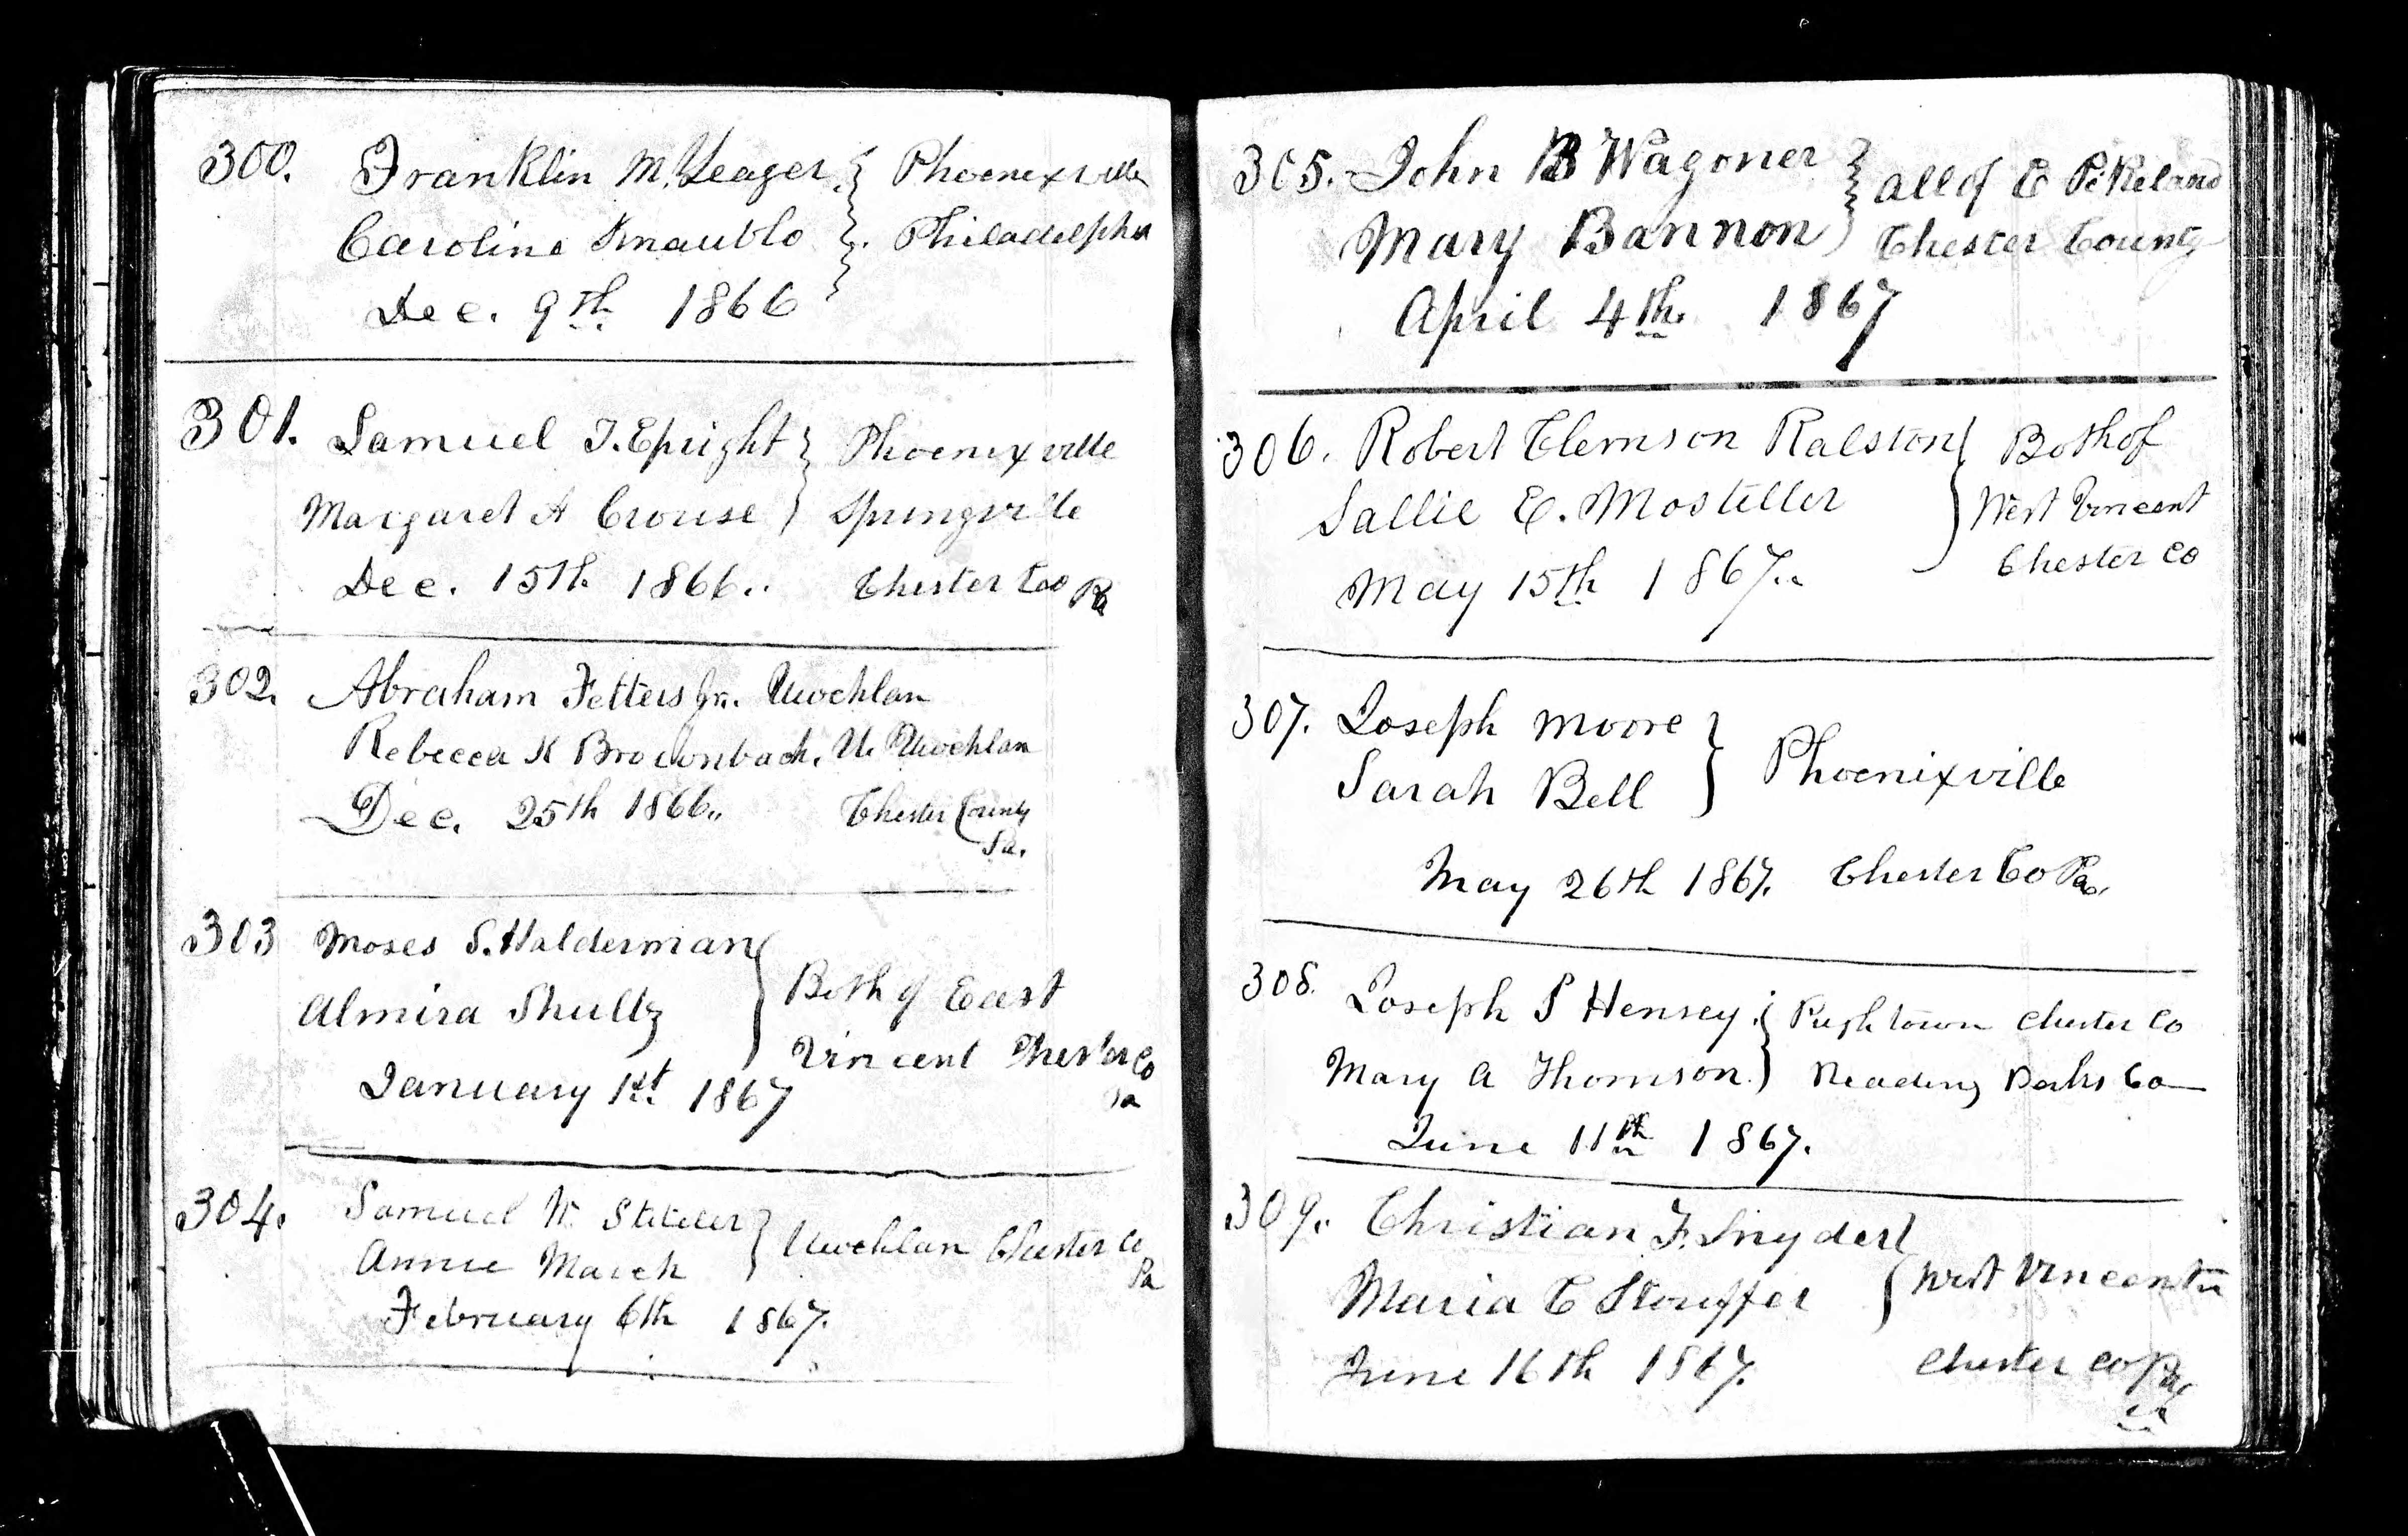 300. Franklin M. Yeager Phoenixville
Caroline Philadelphia
Dec. 9th 1866
301. Samuel T. Epright Phoenixville
Margaret A Crouse Springville
Dec. 15th 1866.. Chester Coo Pa
302. Abraham Fetters Jr. Uwchlan
Rebecca K Brownback. U. Uwchlan
Dec. 25th 1866.. Chester County
Pa.
303 Moses S. Halderman
Almira Shultz
Both of East
Vincent Chester Co
Pa
January 1st 1867
304. Samuel W. Stiteler
Annie March
Uwchlan Chester Co
Pa
February 6th 1867.
305. John B Wagoner all of E Pikeland
Mary Bannon Chester County
April 4th. 1867
306. Robert Clemson Ralston Both of
Sallie E. Mosteller West Vincent
May 15th 1867.. Chester Co
307. Joseph Moore
Sarah Bell
Phoenixville
May 26th 1867. Chester Co Pa.
308. Joseph S Hensey Pughtown Chester Co
Mary A Thomson. Reading Berks Co
June 11th 1867.
309.. Christian F. Snyder
Maria C Stouffer West Vincent
June 16th 1867. Chester Co Pa